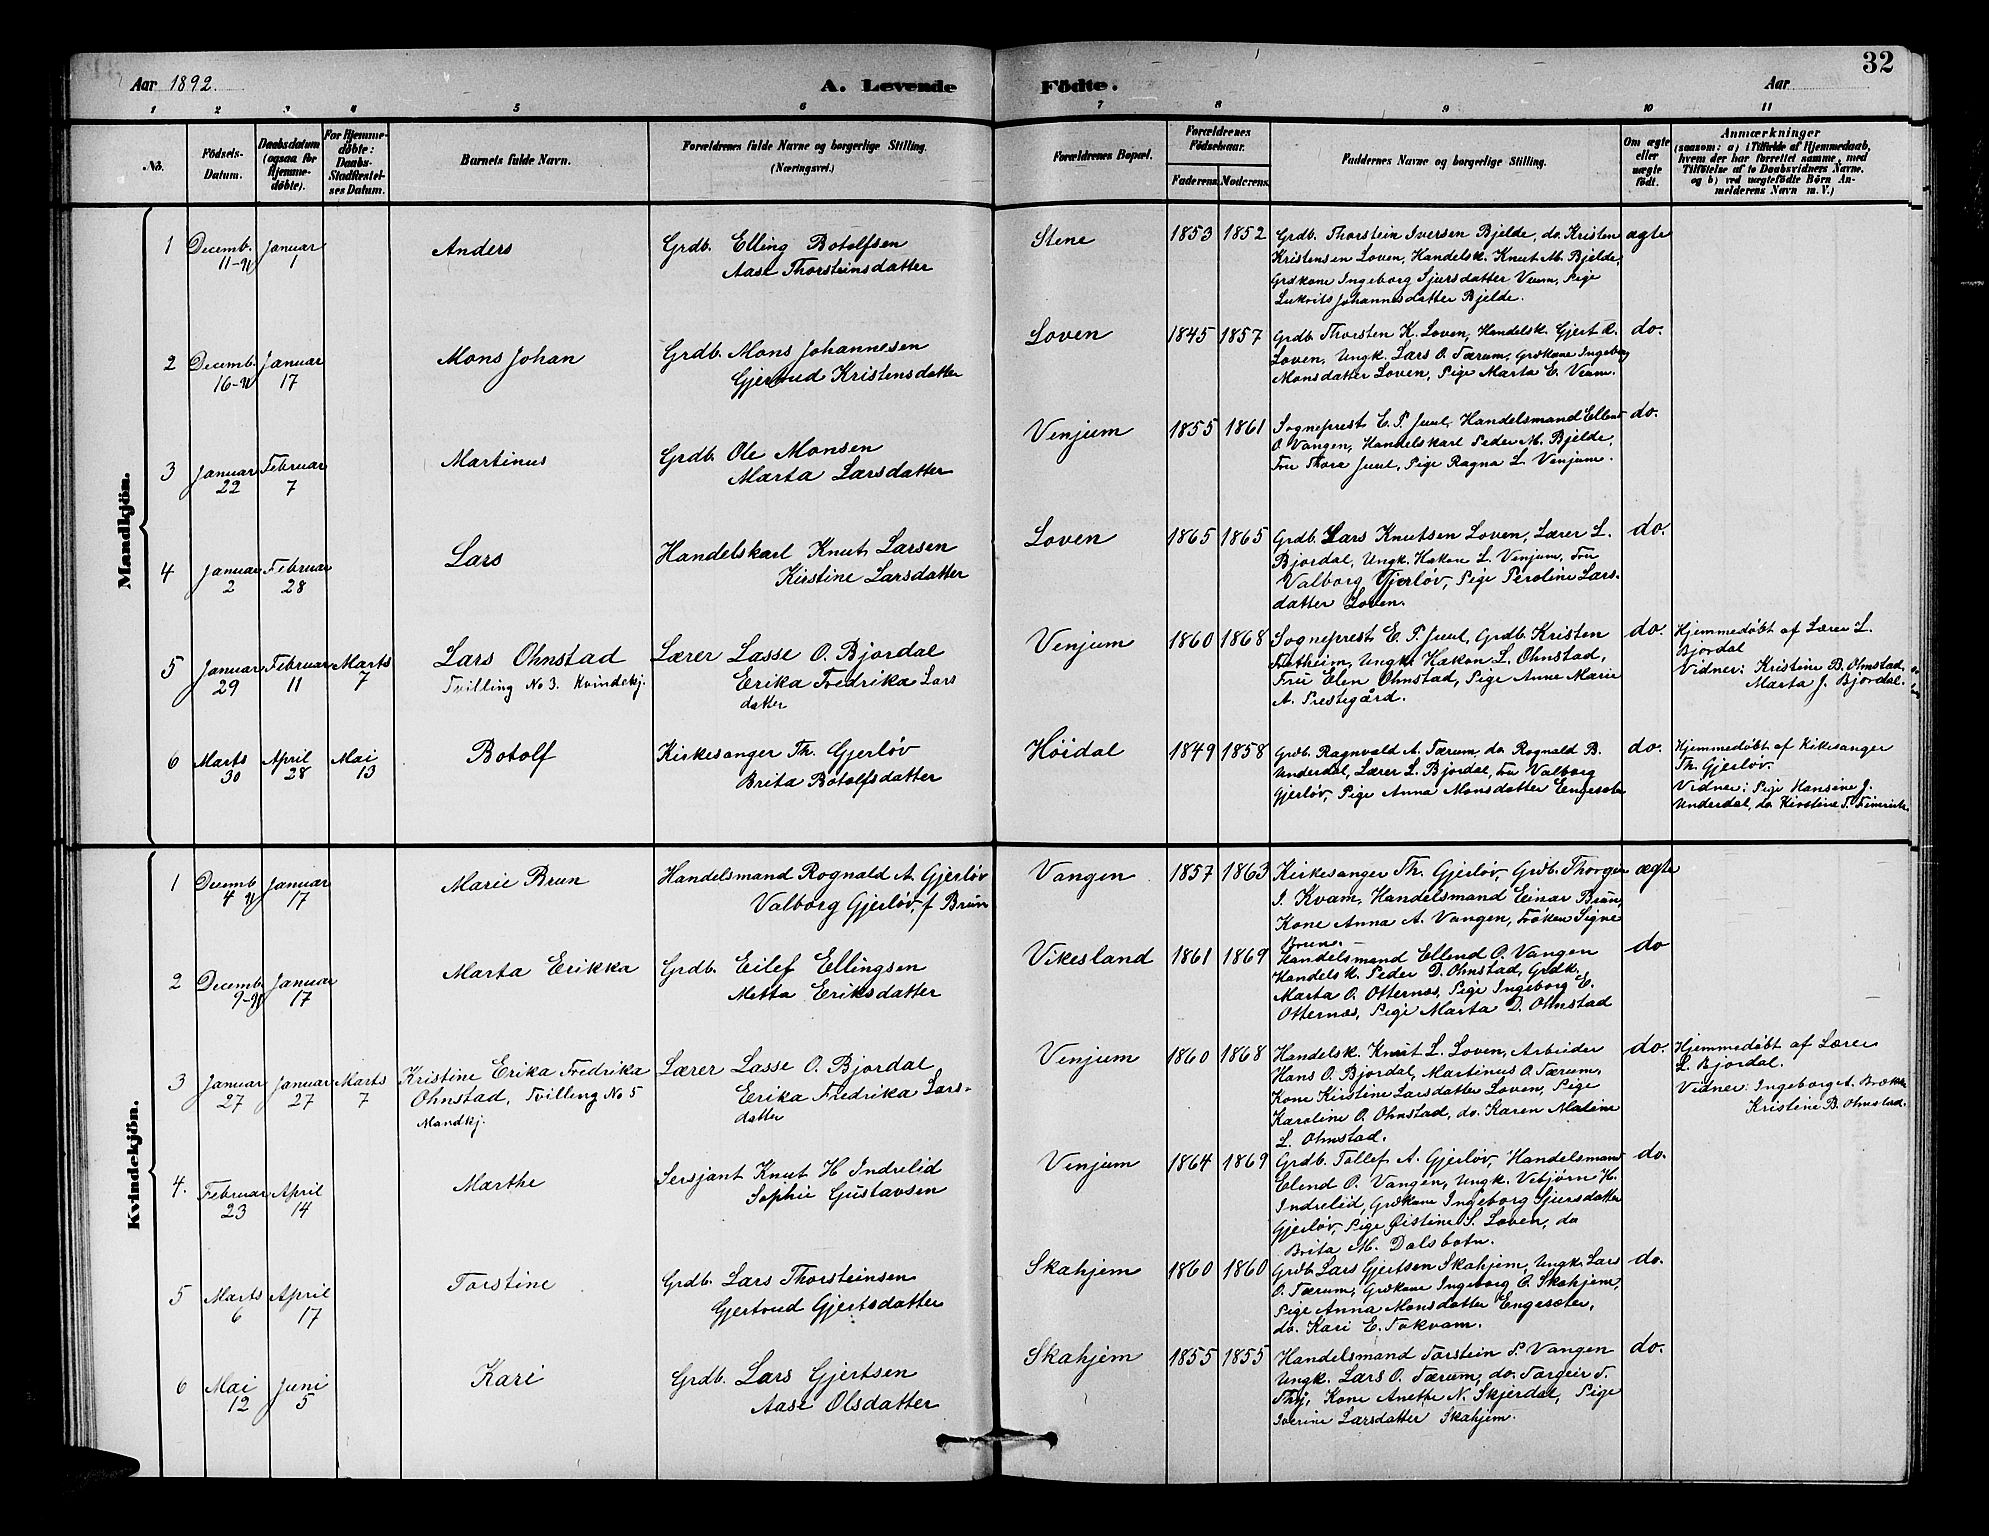 32
Aar 1892.
A. Levende Födte.
Aar
1 2 3 4 5 6 7 8 9 10 11
No.
Födsels-
Datum.
Daabsdatum
(ogsaa for
Hjemme-
döbte).
For Hjemme-
döbte:
Daabs-
Stadfæstel-
ses Datum.
Barnets fulde Navn.
Forældrenes fulde Navne og borgerlige Stilling.
(Næringsvei.)
Forældrenes Bopæl.
Forældrenes
Födselsaar.
Faderens. Moderens.
Faddernes Navne og borgerlige Stilling.
Om ægte
eller
uægte
födt.
Anmærkninger
(saasom: a) i Tilfælde af Hjemmedaab,
hvem der har forrettet samme, med
Tilföielse af to Daabsvidners Navne.
og b) ved uægtefödte Börn An-
melderens Navn m. V.)
Mandkjön.
1 Decemb. 11-91 Januar 1 Anders
Grdb. Elling Botolfsen
Aase Thorsteinsdatter
Stene 1853 1852
Grdb. Thorstein Iversen Bjelde, do. Kristen
Kristensen Loven, Handelsk. Knut M. Bjelde,
Grdkone Ingeborg Sjursdatter Veum, Pige
Lukrits Johannesdatter Bjelde.
ægte
2 Decemb. 16-91 Januar 17 Mons Johan
Grdb. Mons Johannesen
Gjertrud Kristensdatter
Loven 1845 1857
Grdb. Thorsten K. Loven, Handelsk. Gjert R.
Loven, Ungk. Lars O. Tærum, Grdkone Ingeborg
Monsdatter Loven, Pige Marta E. Veum.
do.
3 Januar 22 Februar 7 Martinus
Grdb. Ole Monsen
Marta Larsdatter
Venjum 1855 1861
Sogneprest E. P. Juul, Handelsmand Ellend
O. Vangen, Handelskarl Peder M. Bjelde,
Fru Thora Juul, Pige Ragna L. Venjum.
do.
4 Januar 2 Februar 28 Lars
Handelskarl Knut Larsen
Kirstine Larsdatter
Loven 1865 1865
Grdb. Lars Knutsen Loven, Lærer L.
Bjordal, Ungk. Hakon L. Venjum, Fru
Valborg Gjerløv, Pige Peroline Lars-
datter Loven.
do.
5 Januar 29 Februar 11 Marts 7 Lars Ohnstad
Tvilling No 3. Kvindekj.
Lærer Lasse O. Bjordal
Erika Fredrika Lars
datter
Venjum 1860 1868
Sogneprest E. P. Juul, Grdb. Kristen
Fretheim, Ungk. Hakon L. Ohnstad,
Fru Elen Ohnstad, Pige Anne Marie
A. Prestegård.
do.
Hjemmedøbt af Lærer L.
Bjordal
Vidner: Kristine B. Ohnstad,
Marta J. Bjordal.
6 Marts 30 April 28 Mai 13 Botolf
Kirkesanger Th. Gjerløv
Brita Botolfsdatter
Höidal 1849 1858
Grdb. Ragnvald A. Tærum, do. Rognald B.
Underdal, Lærer L. Bjordal, Fru Valborg
Gjerløv, Pige Anna Monsdatter Engesæter
do.
Hjemmedøbt af Kikesanger
Th. Gjerløv.
Vidner: Pige Hansine J.
Underdal, do. Kirstine T.
Kvindekjön.
1 Decemb 4 91 Januar 17 Marie Brun
Handelsmand Rognald A. Gjerløv
Valborg Gjerløv, f Brun
Vangen 1857 1863
Kirkesanger Th. Gjerløv, Grdb. Thorgier
I. Kvam, Handelsmand Einar Brun,
Kone Anna A. Vangen, Frøken Signe
Brun.
ægte
2 Decemb 9-91 Januar 17 Marta Erikka
Grdb. Eilef Ellingsen
Metta Eriksdatter
Vikesland 1861 1869
Handelsmand Ellend O. Vangen
Handelsk. Peder D. Ohnstad, Grdk.
Marta O. Otternæs, Pige Ingeborg E.
Otternæs, Pige Marta D. Ohnstad
do
3 Januar 27 Januar 27 Marts 7 Kristine Erika Fredrika
Ohnstad, Tvilling No 5
Mandkj.
Lærer Lasse O. Bjordal
Erika Fredrika Lars-
datter
Venjum 1860 1868
Handelsk. Knut L. Loven, Arbeider
Hans O. Bjordal, Martinus O. Tærum,
Kone Kirstine Larsdatter Loven, Pige
Karoline O. Ohnstad, do. Karen Maline
L. Ohnstad.
do.
Hjemmedøbt af Lærer
L. Bjordal.
Vidner: Ingeborg t. Brække
Kristine B. Ohnstad.
4. Februar 23 April 14 Marthe
Sersjant Knut H. Indrelid
Sophie Gustavsen
Venjum 1864 1869
Grdb. Tollef A. Gjerløv, Handelsman
Elend O. Vangen, Ungk. Vebjørn H.
Indrelid, Grdkone Ingeborg Sjursdatter
Gjerløv, Pige Øistine S. Loven, do
Brita M. Dalsbotn.
do.
5 Marts 6 April 17 Torstine
Grdb. Lars Thorsteinsen
Gjertrud Gjertsdatter
Skahjem 1860 1860
Grdb. Lars Gjertsen Skahjem, Ungk. Lars
O. Tærum, Grdkone Ingeborg O. Skahjem,
Pige Anna Monsdatter Engesæter,
do. Kari E. Tokvam.
do.
6 Mai 12 Juni 5 Kari
Grdb. Lars Gjertsen
Aase Olsdatter
Skahjem 1855 1855
Handelsmand Torstein P. Vangen
Ungk. Lars O. Tærum, do. Torgeir T.
Thÿ, Kone Anethe N. Skjerdal, Pige
Iverine Larsdatter Skahjem.
do.